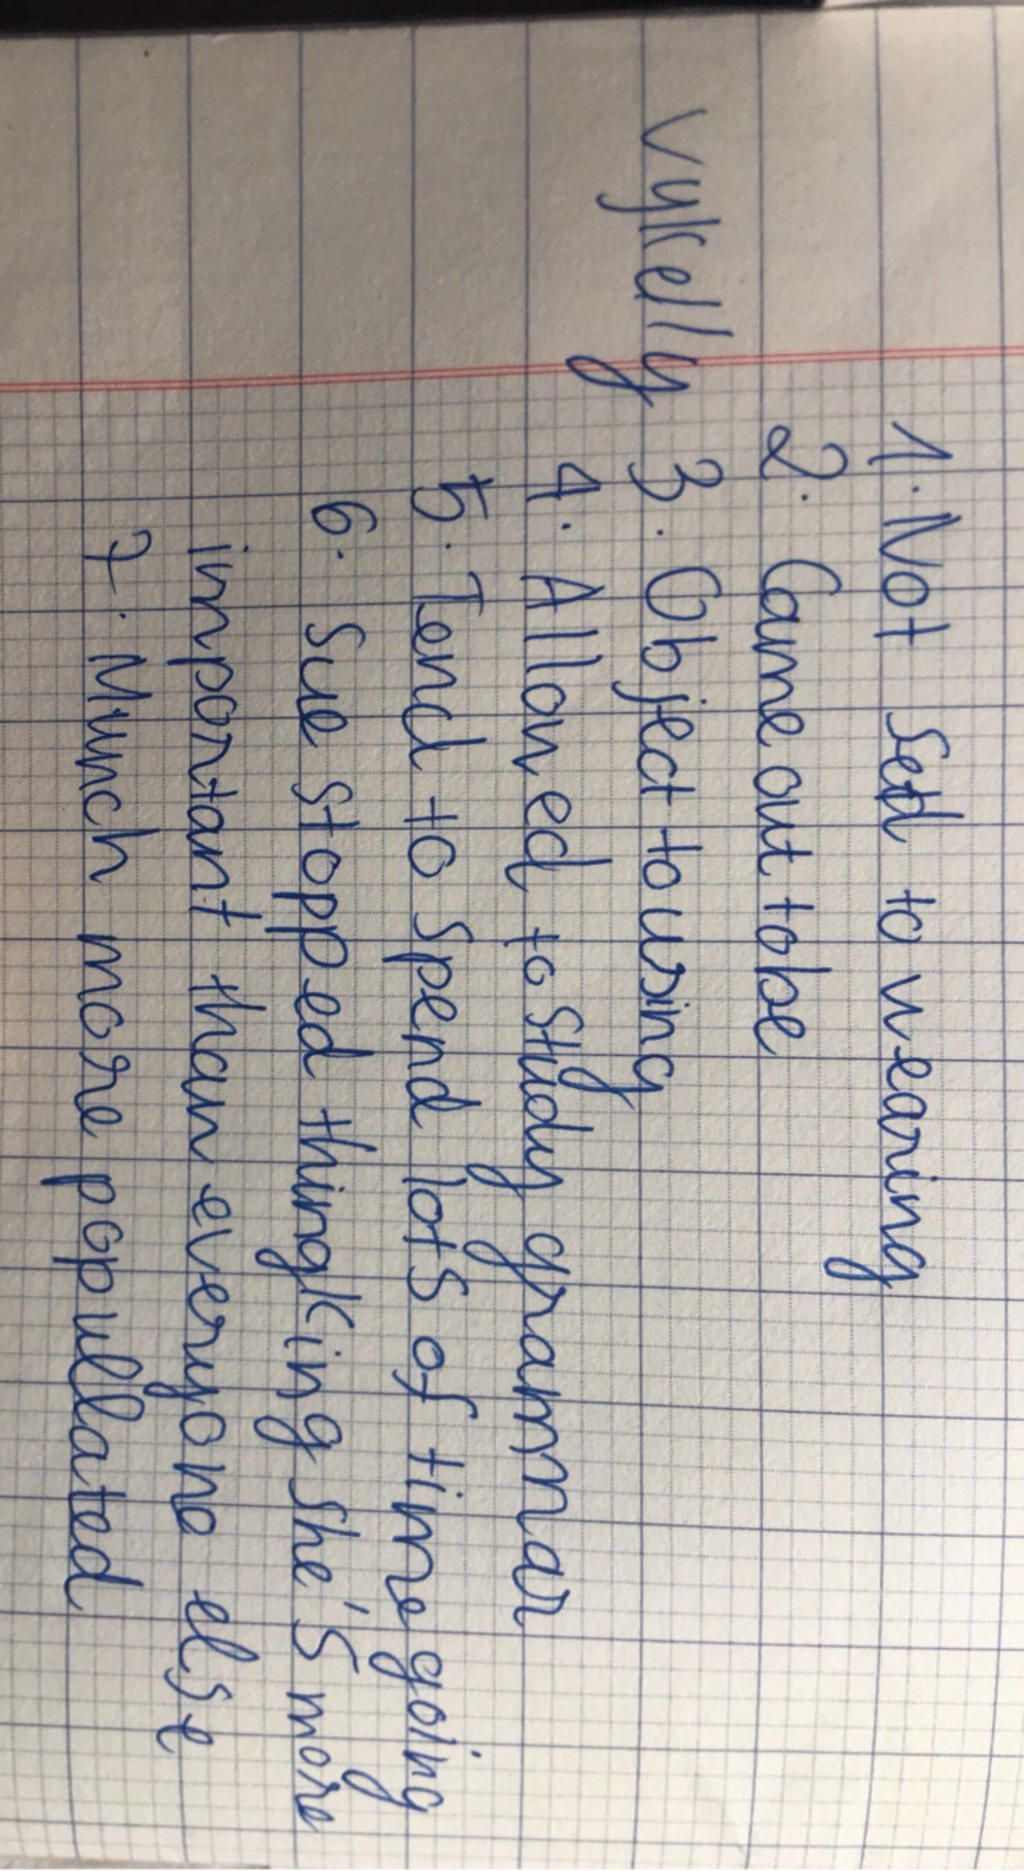 1. Not sed to wearing
2. Came out to be
vykelly 3. Object to using
4. Allowed to study grammar
5. Tend to spend lots of time going
6. Sue stopped thingking she's more
important than everyone else
7. Munch more popullated